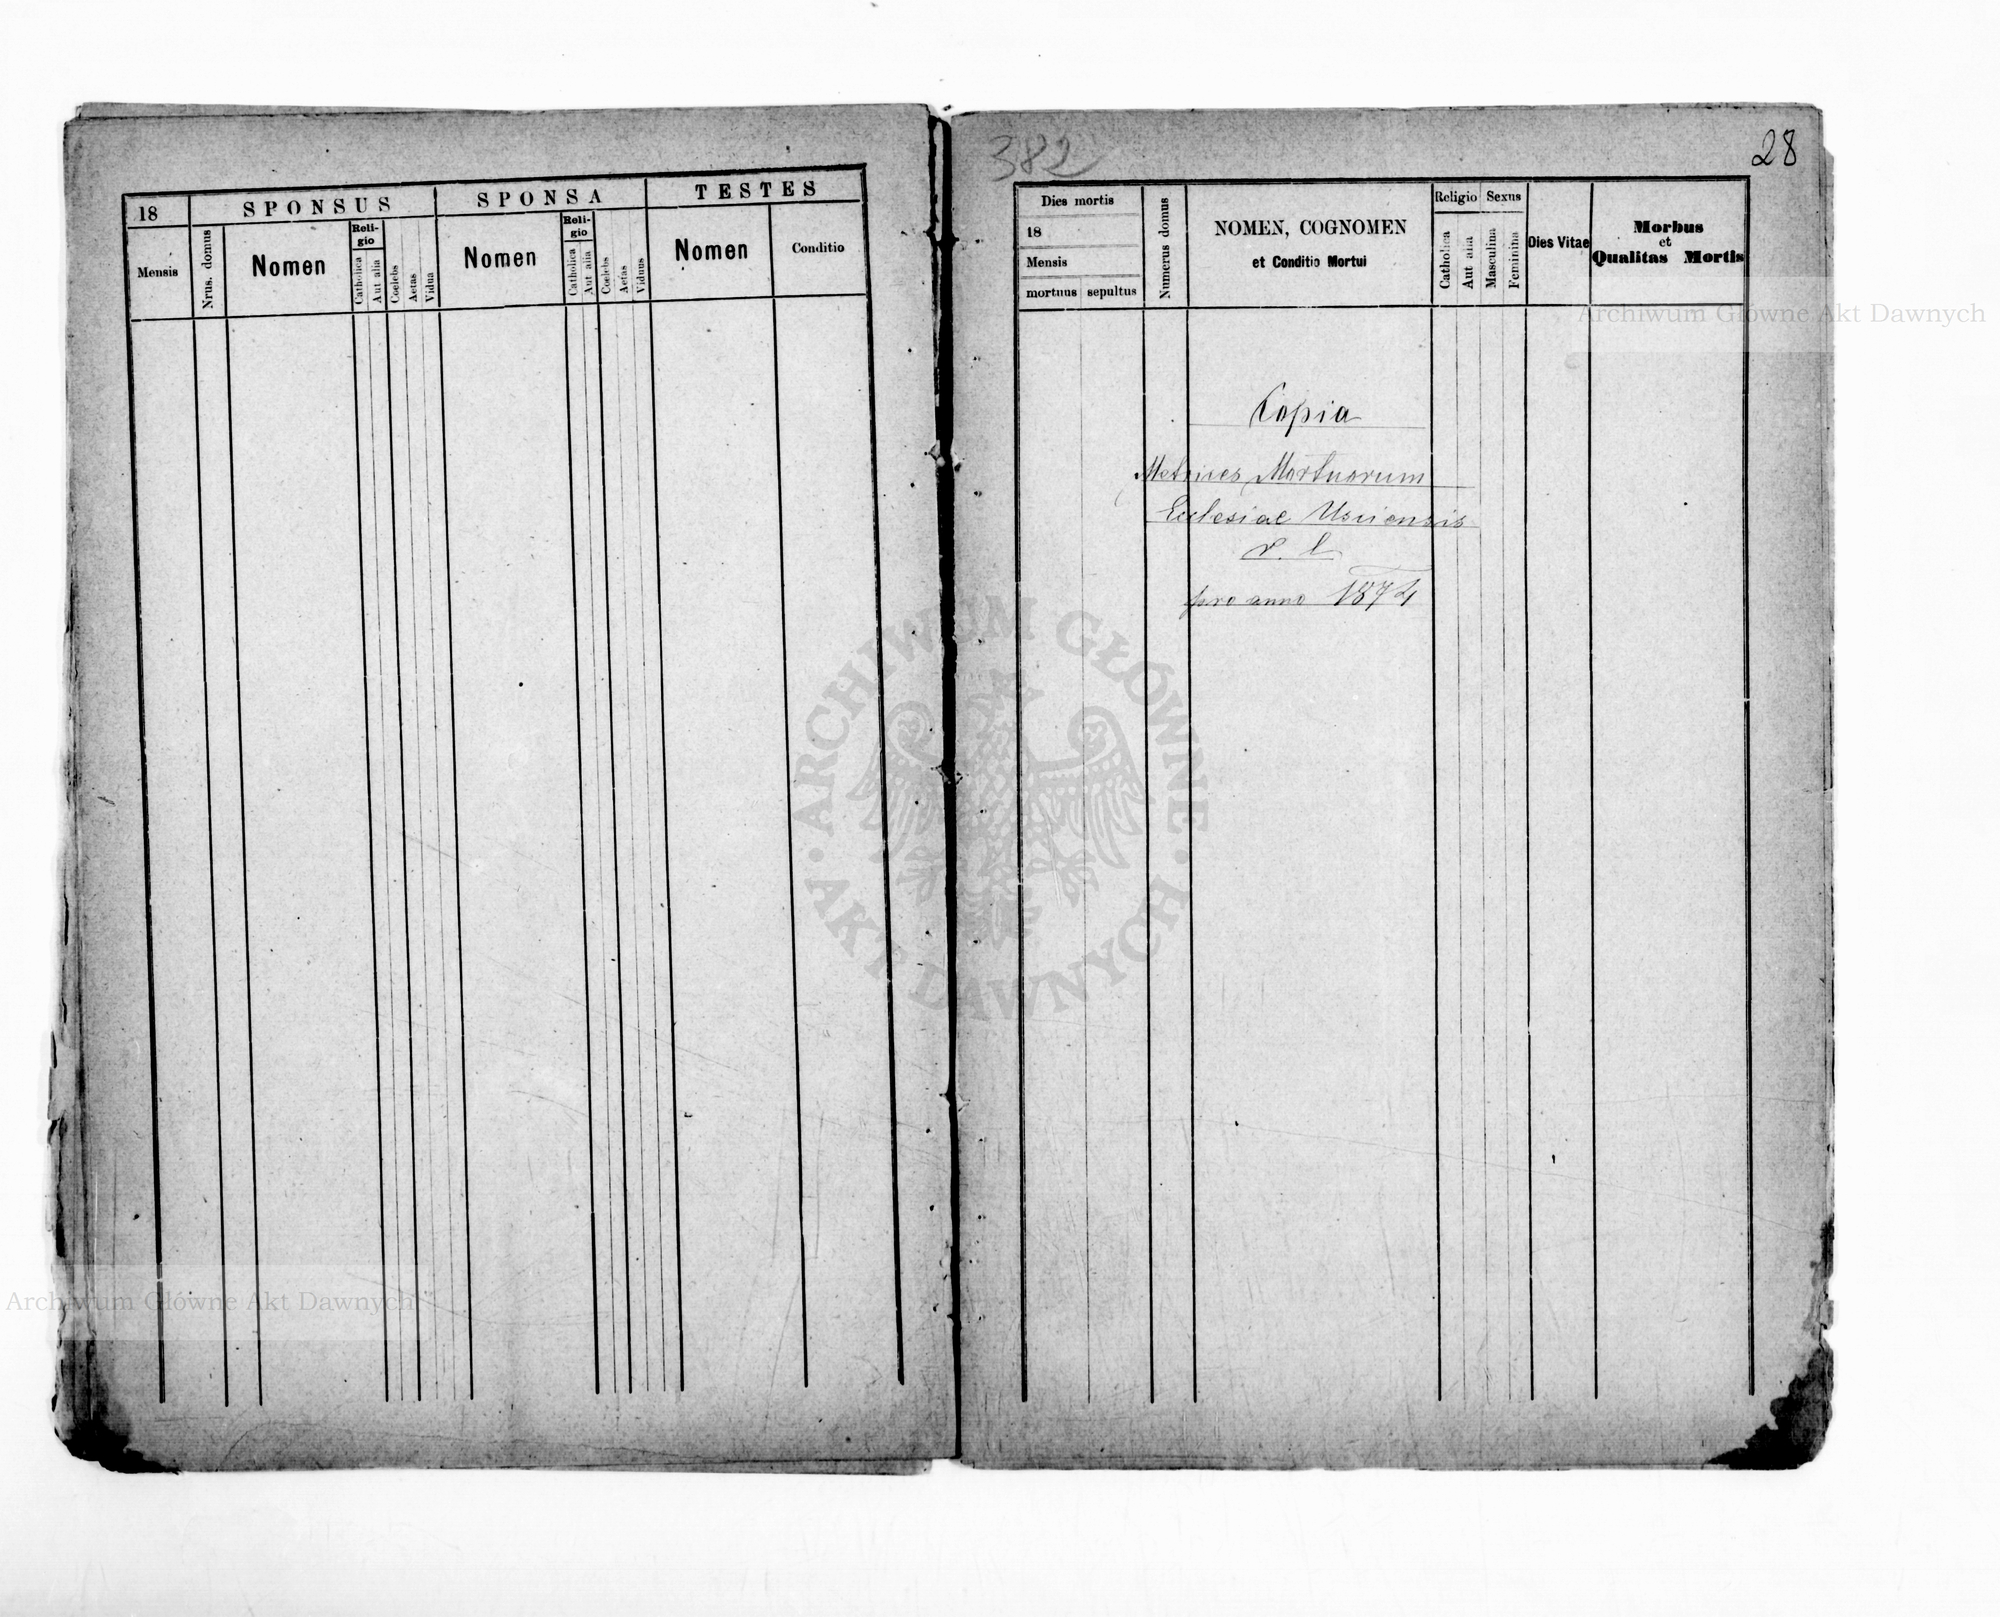 18
SPONSUS
SPONSA
TESTES
Mensis
Nrus. domus
Nomen
Reli-
gio
Catholica
Aut alia
Coelebs
Aetas
Vidua
Nomen
Reli-
gio
Catholica
Aut alia
Coelebs
Aetas
Viduus
Nomen
Conditio
382
28
Dies mortis
18
Mensis
mortuus sepultus
Numerus domus
NOMEN, COGNOMEN
et Conditio Mortui
Religio
Catholica
Aut alia
Sexus
Masculina
Feminina
Dies Vitae
Morbus
et
Qualitas Mortis
Copia
Metrices Mortuorum
Ecclesiae Usciensis
r. l.
pro anno 1874
Archiwum Główne Akt Dawnych
ARCHIWUM GŁÓWNE
AKT DAWNYCH
Archiwum Główne Akt Dawnych